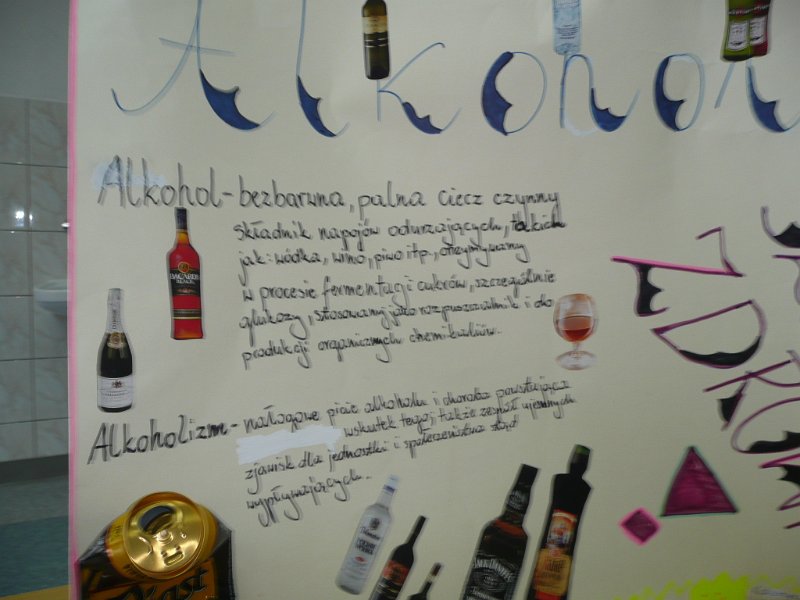 Alkoho
Alkohol - bezbarwna, palna ciecz czynny
składnik napojów odurzających, takich
jak: wódka, wino, piwo itp., otrzymywany
w procesie fermentacji cukrów, szczególnie
glukozy, stosowany jako rozpuszczalnik i do
produkcji organicznych chemikaliów.
Alkoholizm - nałogowe picie alkoholu i choroba powstająca
wskutek tego; także zespół ujemnych
zjawisk dla jednostki i społeczeństwa stąd
wypływających.
BACARDI
BLACK
JACK DANIEL'S
ZDROW